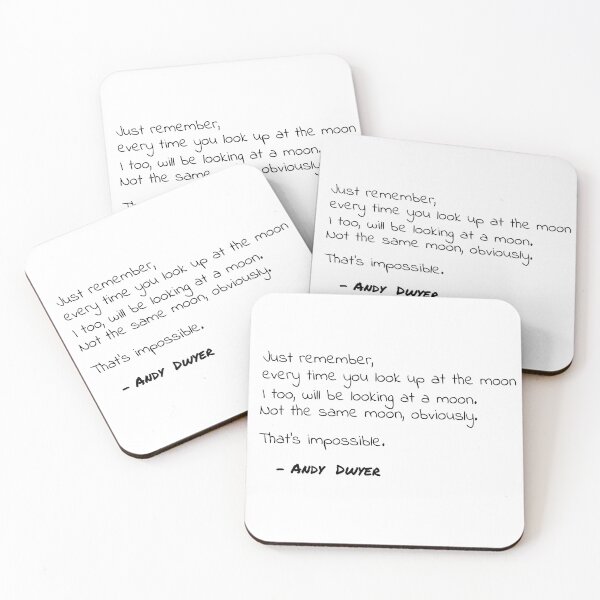 Just remember,
every time you look up at the moon
I too, will be looking at a moon.
Not the same obviously.
Just remember,
every time you look up at the moon
I too, will be looking at a moon.
Not the same moon, obviously.
That's impossible.
- Andy Dwyer
Just remember,
every time you look up at the moon
I too, will be looking at a moon.
Not the same moon, obviously.
That's impossible.
- Andy Dwyer
Just remember,
every time you look up at the moon
I too, will be looking at a moon.
Not the same moon, obviously.
That's impossible.
- Andy Dwyer